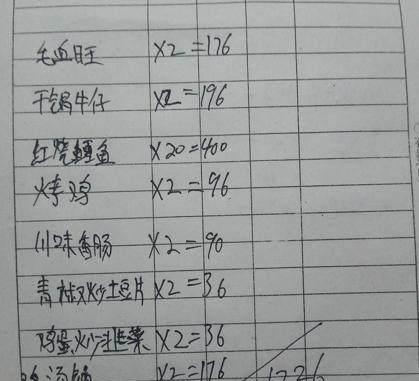 毛血旺 X2=176
干锅牛仔 X2=196
红烧鳝鱼 X20=400
烤鸡 X2=96
川味香肠 X2=90
青椒炒土豆片 X2=36
鸡蛋炒韭菜 X2=36
汤锅 X2=176 1226